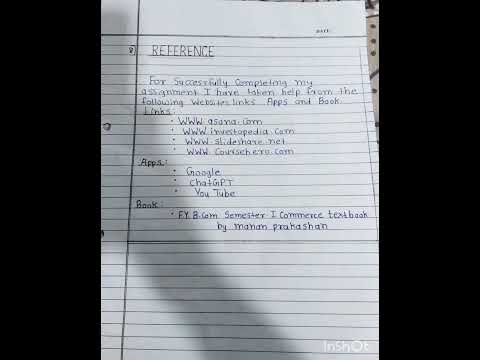 DATE:
8) REFERENCE
For Successfully Completing my
assignment I have taken help from the
following Websites links Apps and Book
Links:
• WWW.asana.com
• WWW.investopedia.com
• WWW.slideshare.net
• WWW.Coursehero.com
Apps:
• Google
• ChatGPT
• You Tube
Book:
• F.Y. B.Com Semester I Commerce textbook
by manan prakashan
InShOt